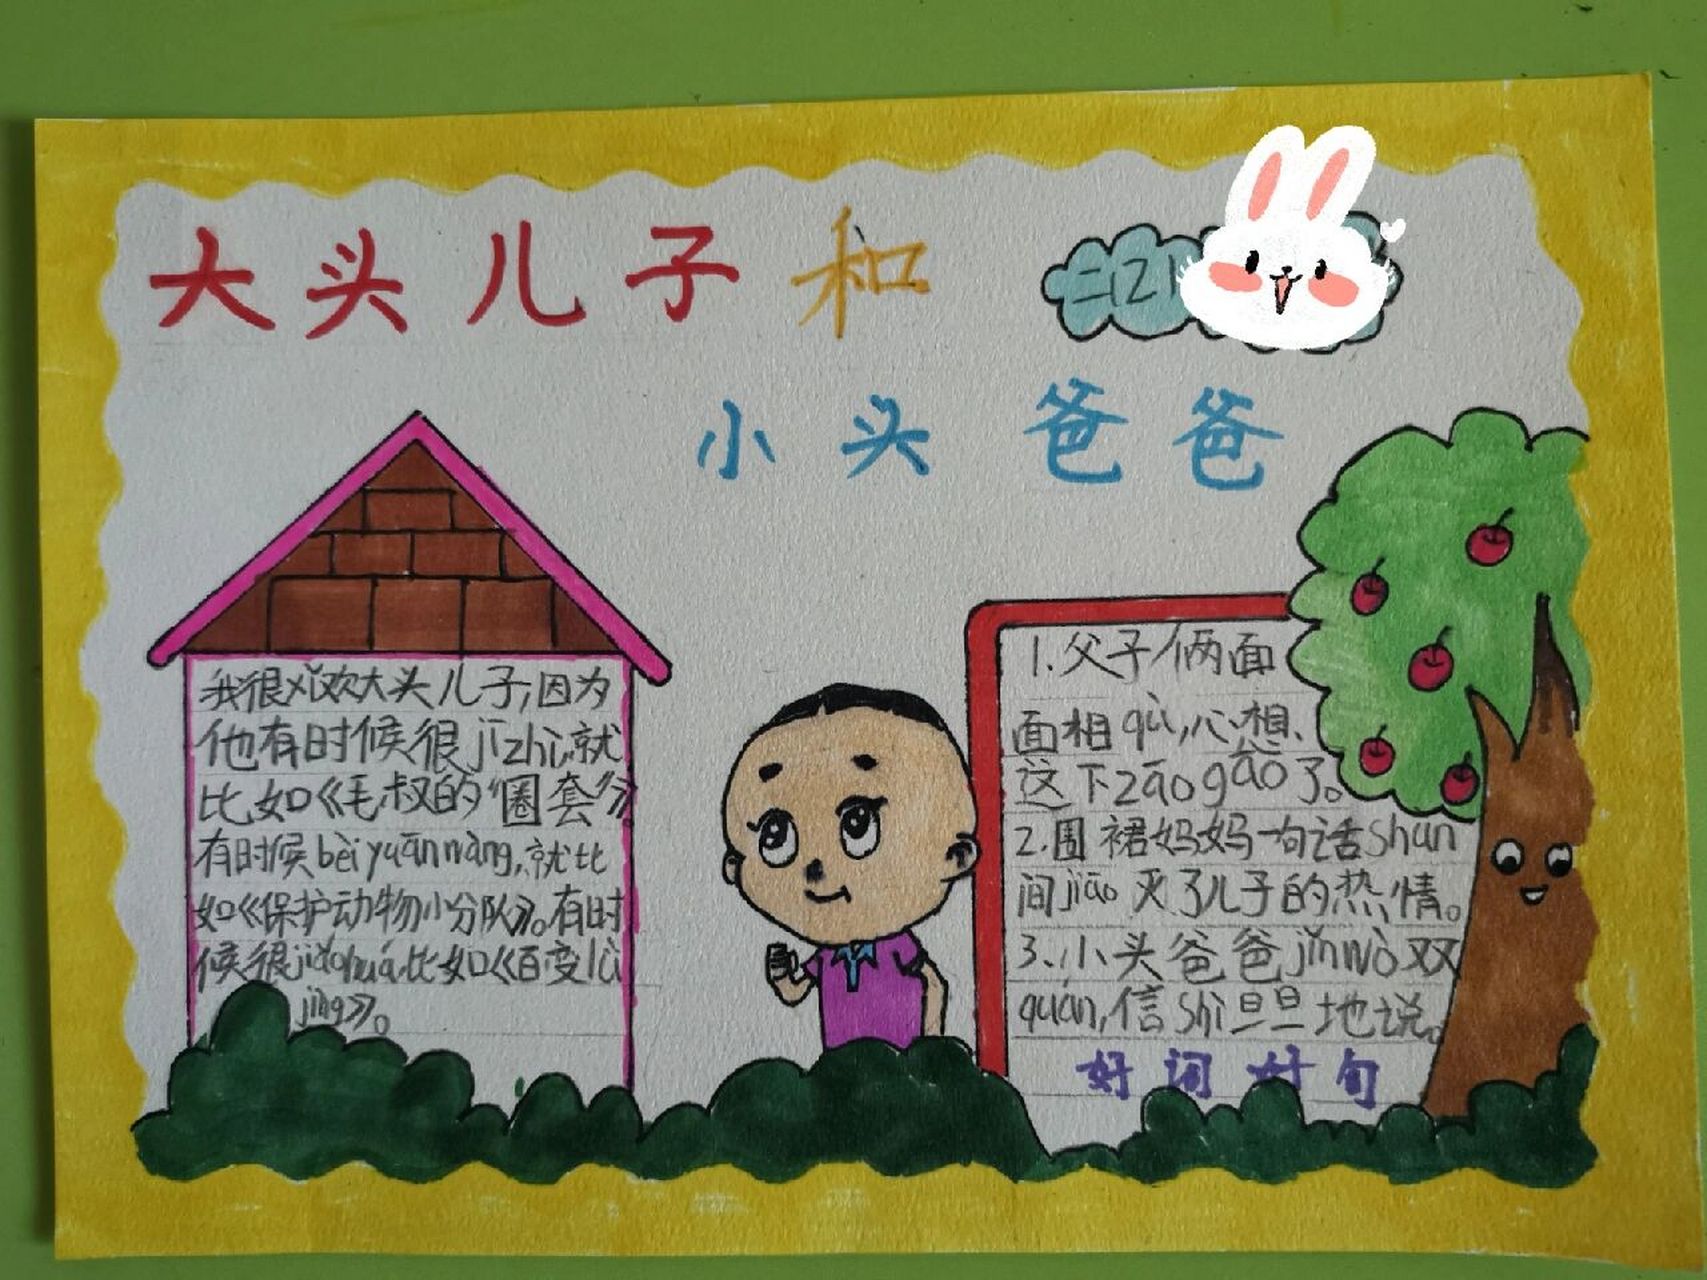 大头儿子和
二(2)
小头爸爸
我很xǐ欢大头儿子,因为
他有时候很jīzhì,就
比如《毛叔的"圈套"》
有时候bèiyuānwàng,就比
如《保护动物小分队》。有时
候很jiǎohuá,比如《百变lǜ
jīng》。
1.父子俩面
面相qù,心想、
这下zāogāo了。
2.围裙妈妈一句话shùn
间jiāo灭了儿子的热情。
3.小头爸爸jǐnwò双
quán,信shì旦旦地说。
好词好句